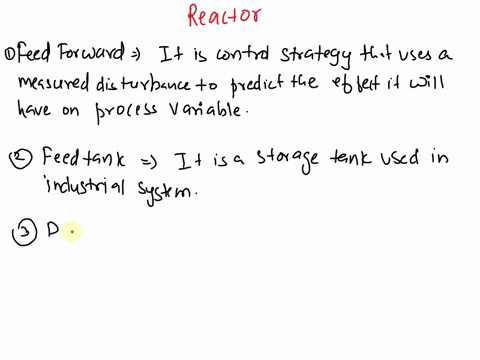 Reactor
① Feed Forward ⇒ It is control strategy that uses a
measured disturbance to predict the effect it will
have on process variable.
② Feed tank ⇒ It is a storage tank used in
industrial system.
③ D